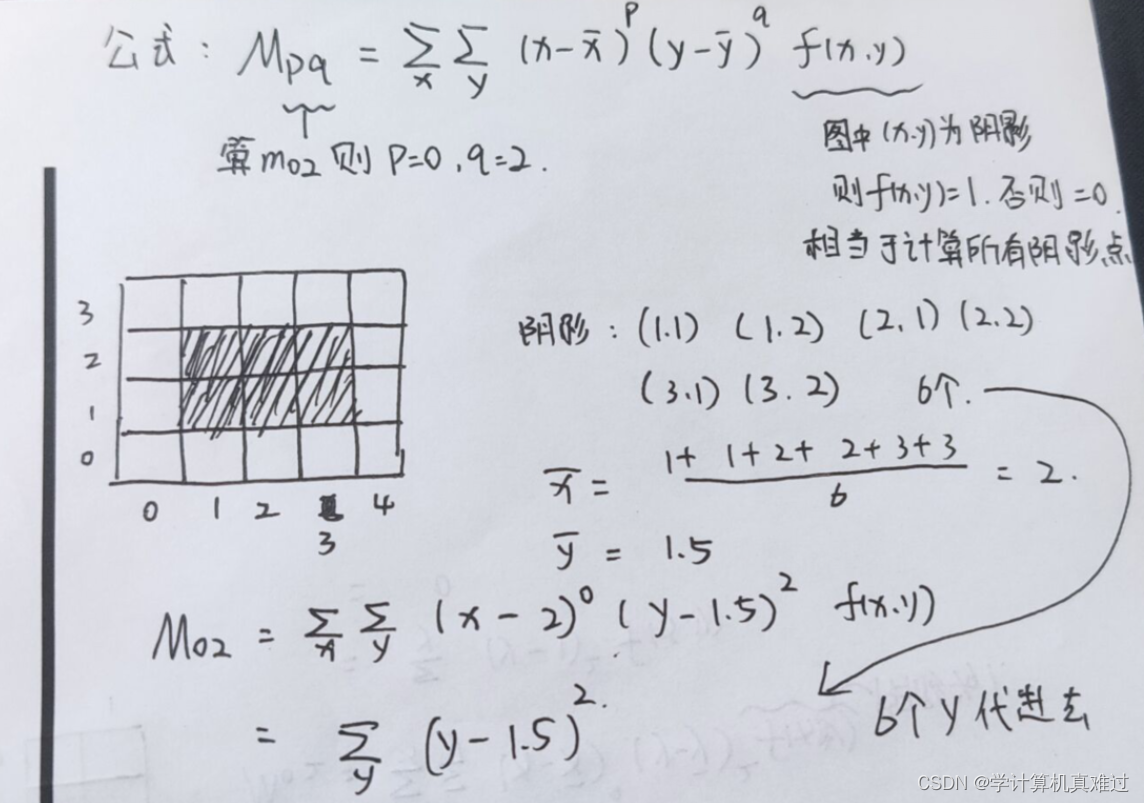 公式: Mpq = Σx Σy (x-x̄)^p (y-ȳ)^q f(x,y)
算m02则P=0,q=2.
图中(x,y)为阴影
则f(x,y)=1.否则=0.
相当于计算所有阴影点
3
2
1
0
0 1 2 3 4
阴影: (1.1) (1.2) (2,1) (2.2)
(3.1) (3.2) 6个.
x̄ = (1+1+2+2+3+3)/6 = 2.
ȳ = 1.5
M02 = Σx Σy (x-2)^0 (y-1.5)^2 f(x,y)
= Σy (y-1.5)^2.
6个y代进去
CSDN @学计算机真难过